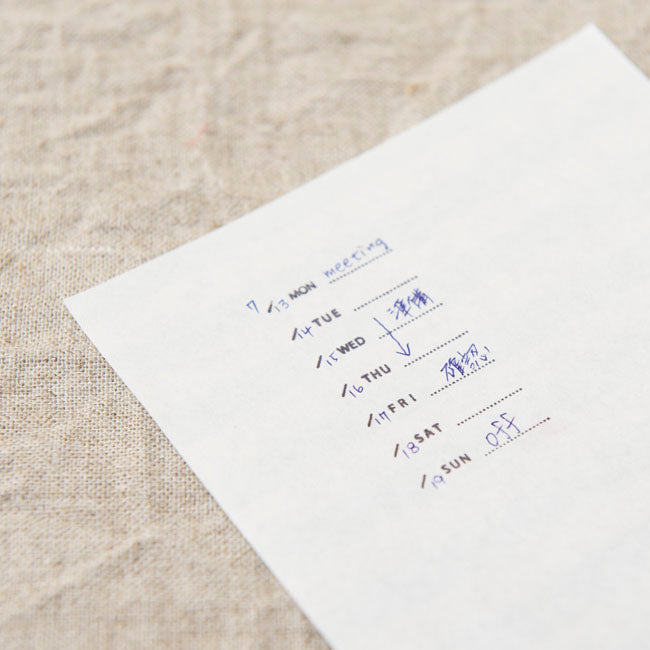 7/13 MON meeting
/14 TUE
/15 WED 準備
/16 THU
/17 FRI 確認!!
/18 SAT
/19 SUN off